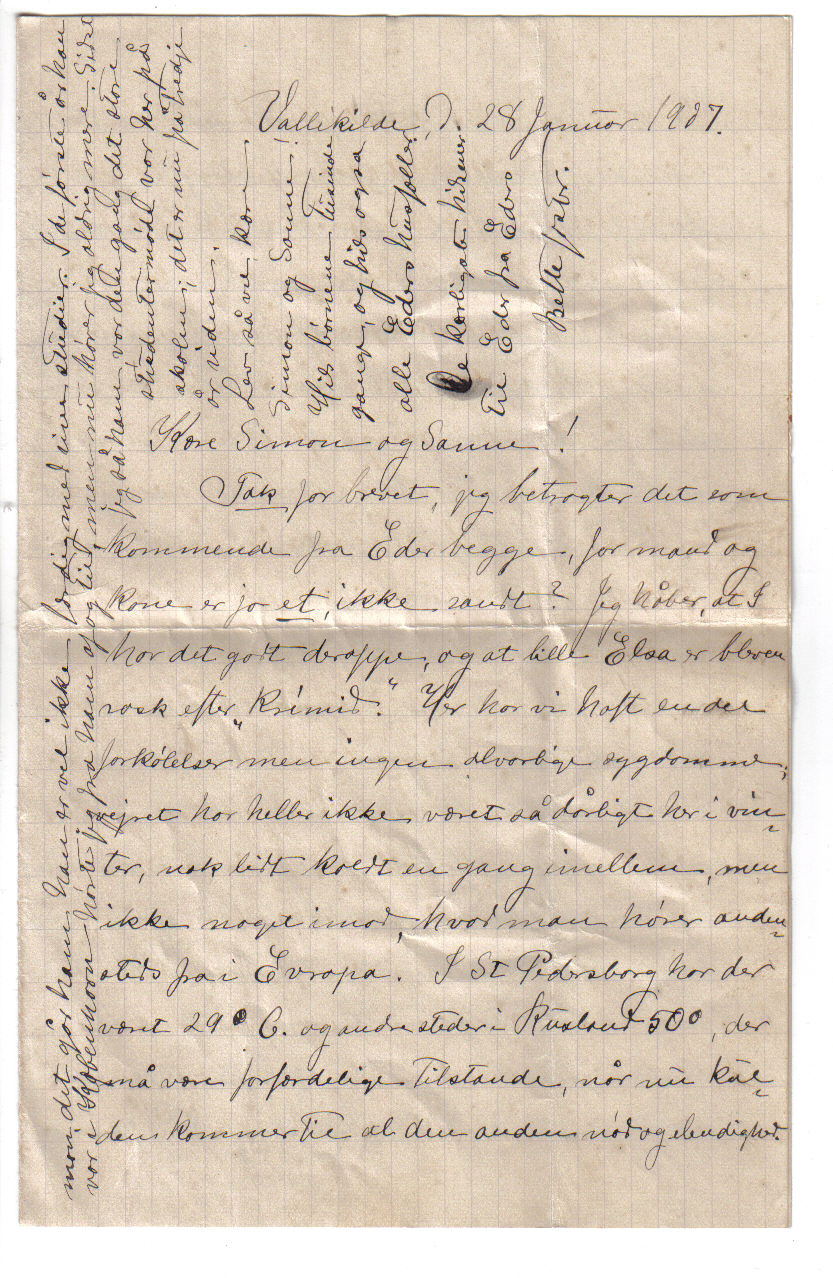 Vallekilde, d. 28 Januar 1907.
Kære Simon og Sanne!
Tak for brevet, jeg betragter det som
kommende fra Eder begge, for mand og
kone er jo et, ikke sandt? Jeg håber, at I
har det godt deroppe, og at lille Elsa er bleven
rask efter "Krimid." Her har vi haft en del
forkölelser men ingen alvorlige sygdomme,
vejret har heller ikke været så dårligt her i vin=
ter, nok lidt koldt en gang imellem, men
ikke noget imod, hvad man hörer anden=
steds fra i Evropa. I St Pedersborg har der
været 29° C. og andre steder i Rusland 50°, der
må være forfærdelige tilstande, når nu kul=
den kommer til al den anden nöd og elendighed.
mon det går ham, han er vel ikke færdig med sine studier. I de förste år han
var i Köbenhavn hörte jeg fra ham af og til, men nu hörer jeg aldrig mere. Sidst
jeg så ham var den gang det store
studentermöde var her på
skolen; det er nu på tredje
år siden.
Lev så vel, kære
Simon og Sanne!
Hils börnene tusinde
gange, og hils også
alle Eders husfæller
De kærligste hilsener
til Eder fra Eders